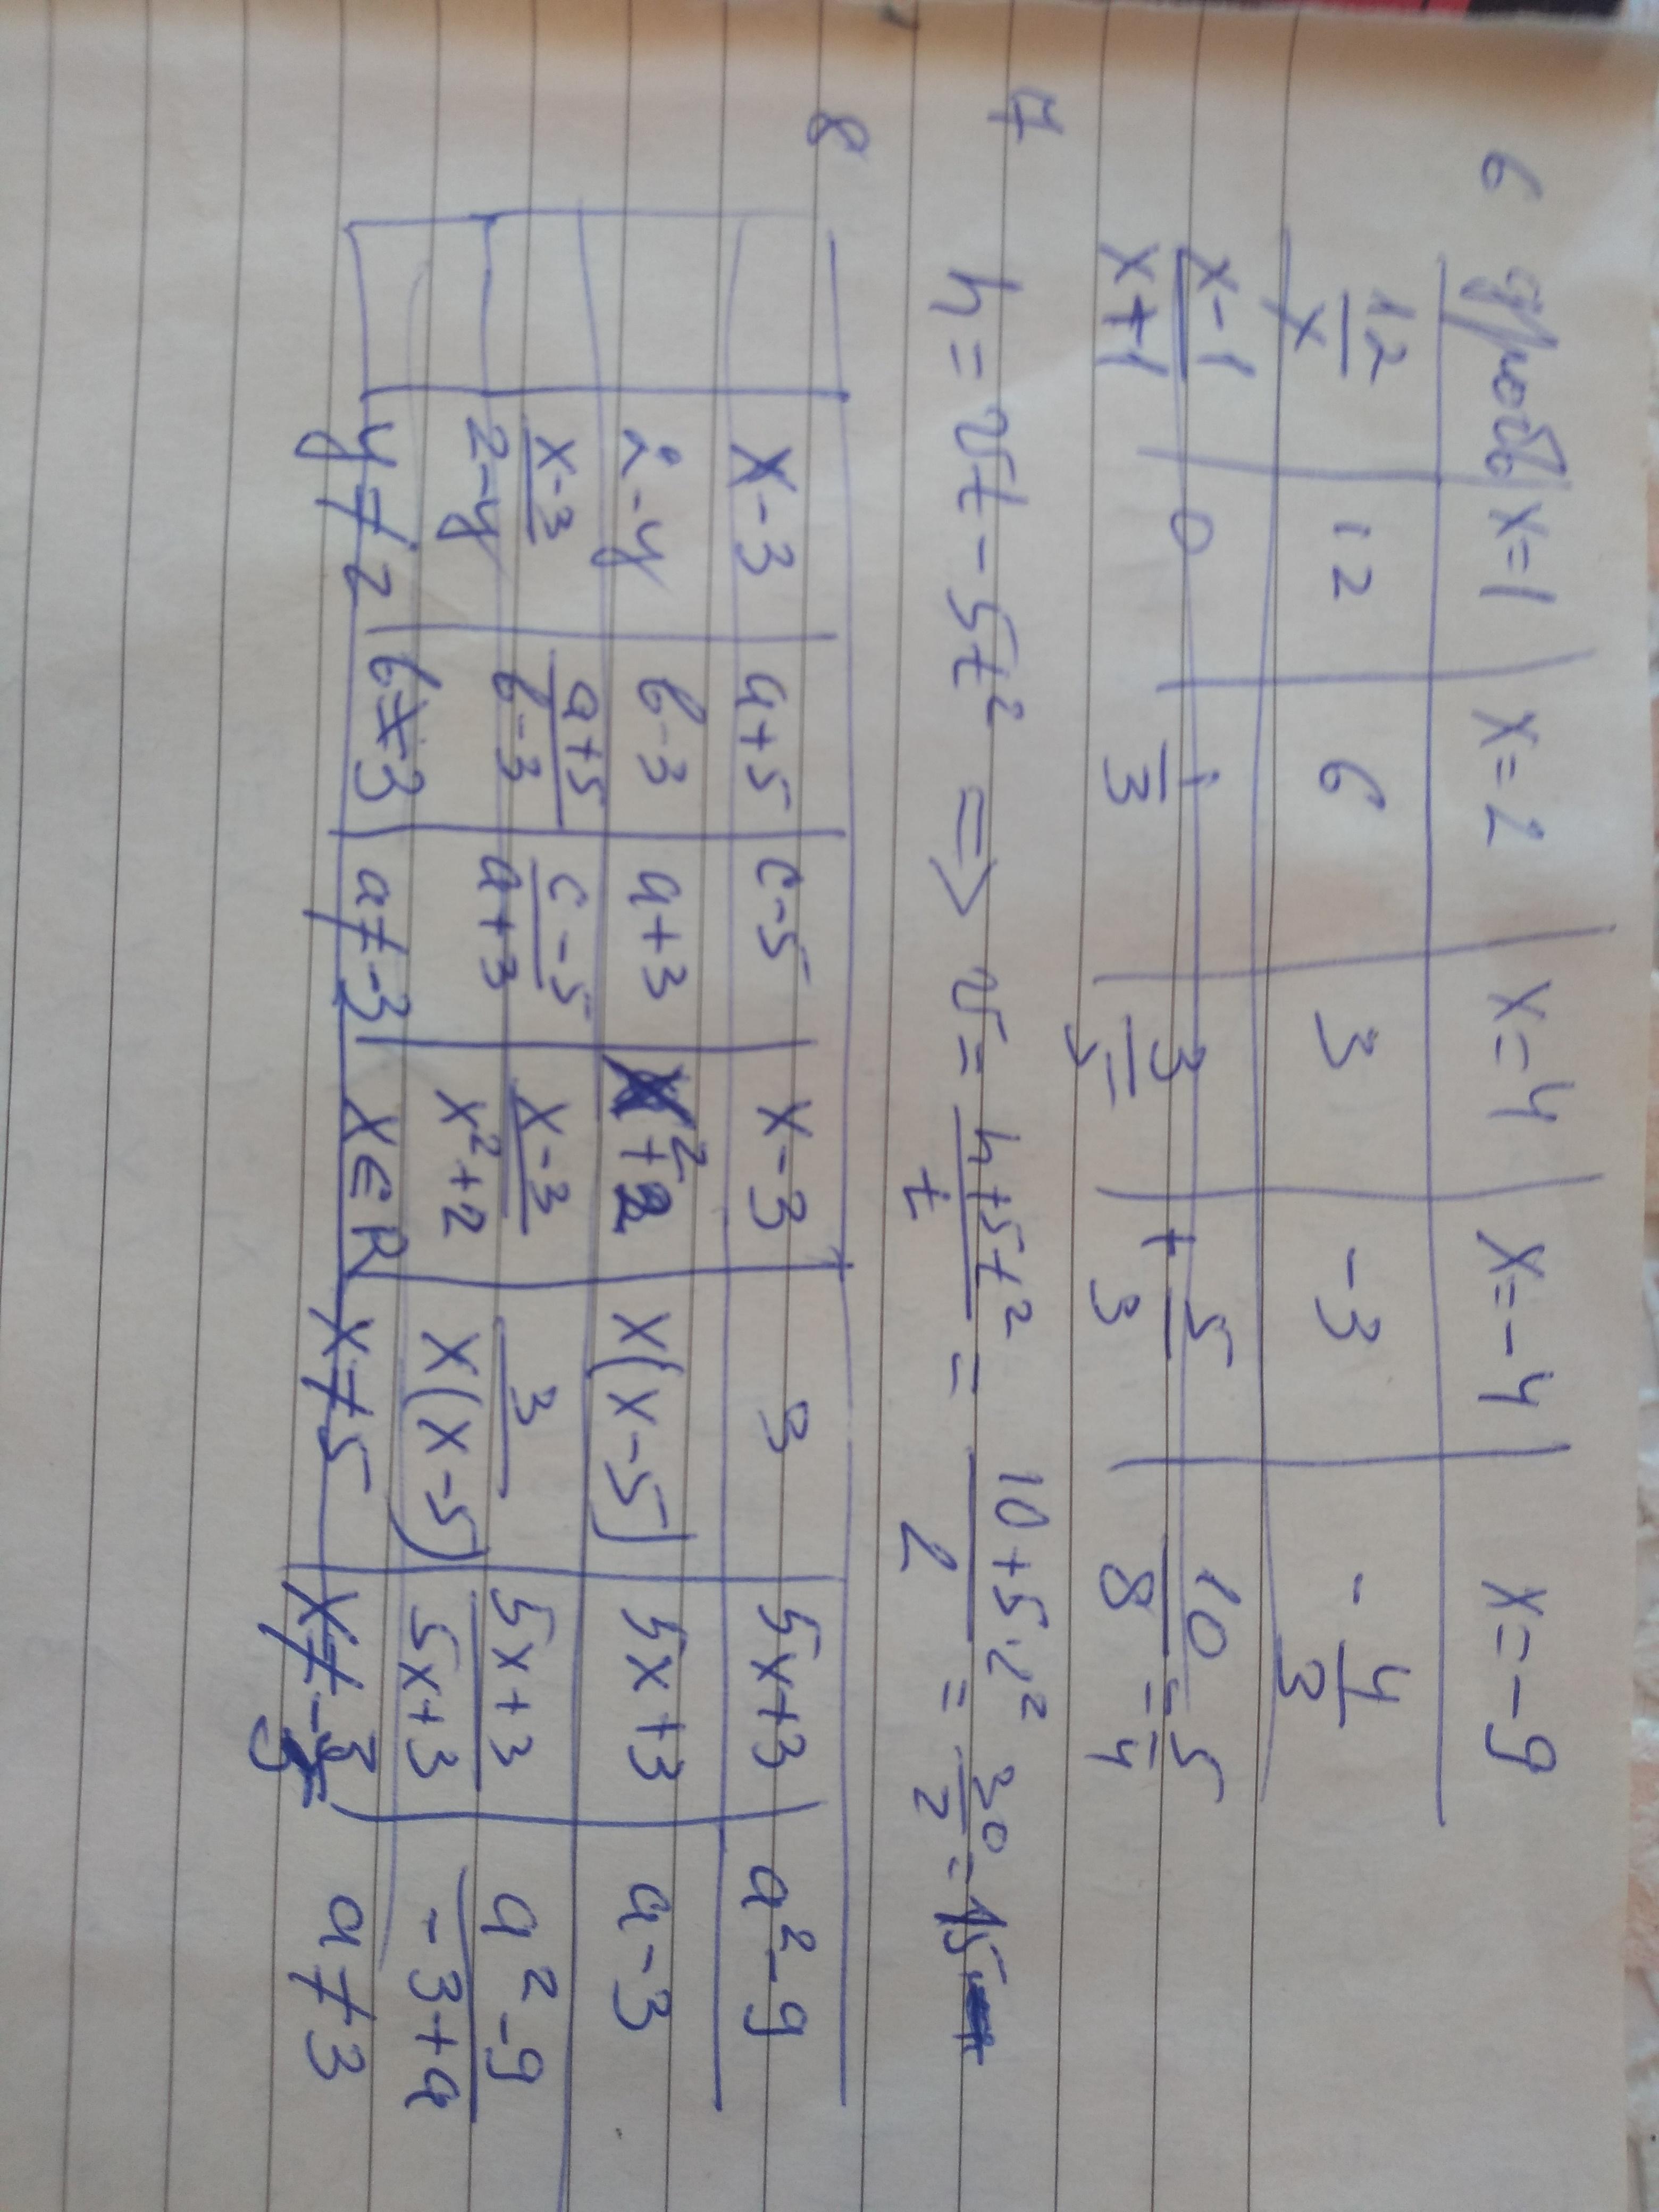 6 дробь | x=1 | x=2 | x=4 | x=-4 | x=-9
12/x | 12 | 6 | 3 | -3 | -4/3
x-1/x+1 | 0 | 1/3 | 3/5 | +5/3 | 10/8=5/4
7 h=vt-5t² => v=h+5t²/t=10+5·2²/2=30/2=15
8 x-3 | a+5 | c-5 | x-3 | 3 | 5x+3 | a²-9
2-y | b-3 | a+3 | x²+2 | x(x-5) | 5x+3 | a-3
x-3/2-y | a+5/b-3 | c-5/a+3 | x-3/x²+2 | 3/x(x-5) | 5x+3/5x+3 | a²-9/-3+a
y≠2 | b≠3 | a≠-3 | x∈R | x≠5 | x≠-3/5 | a≠3